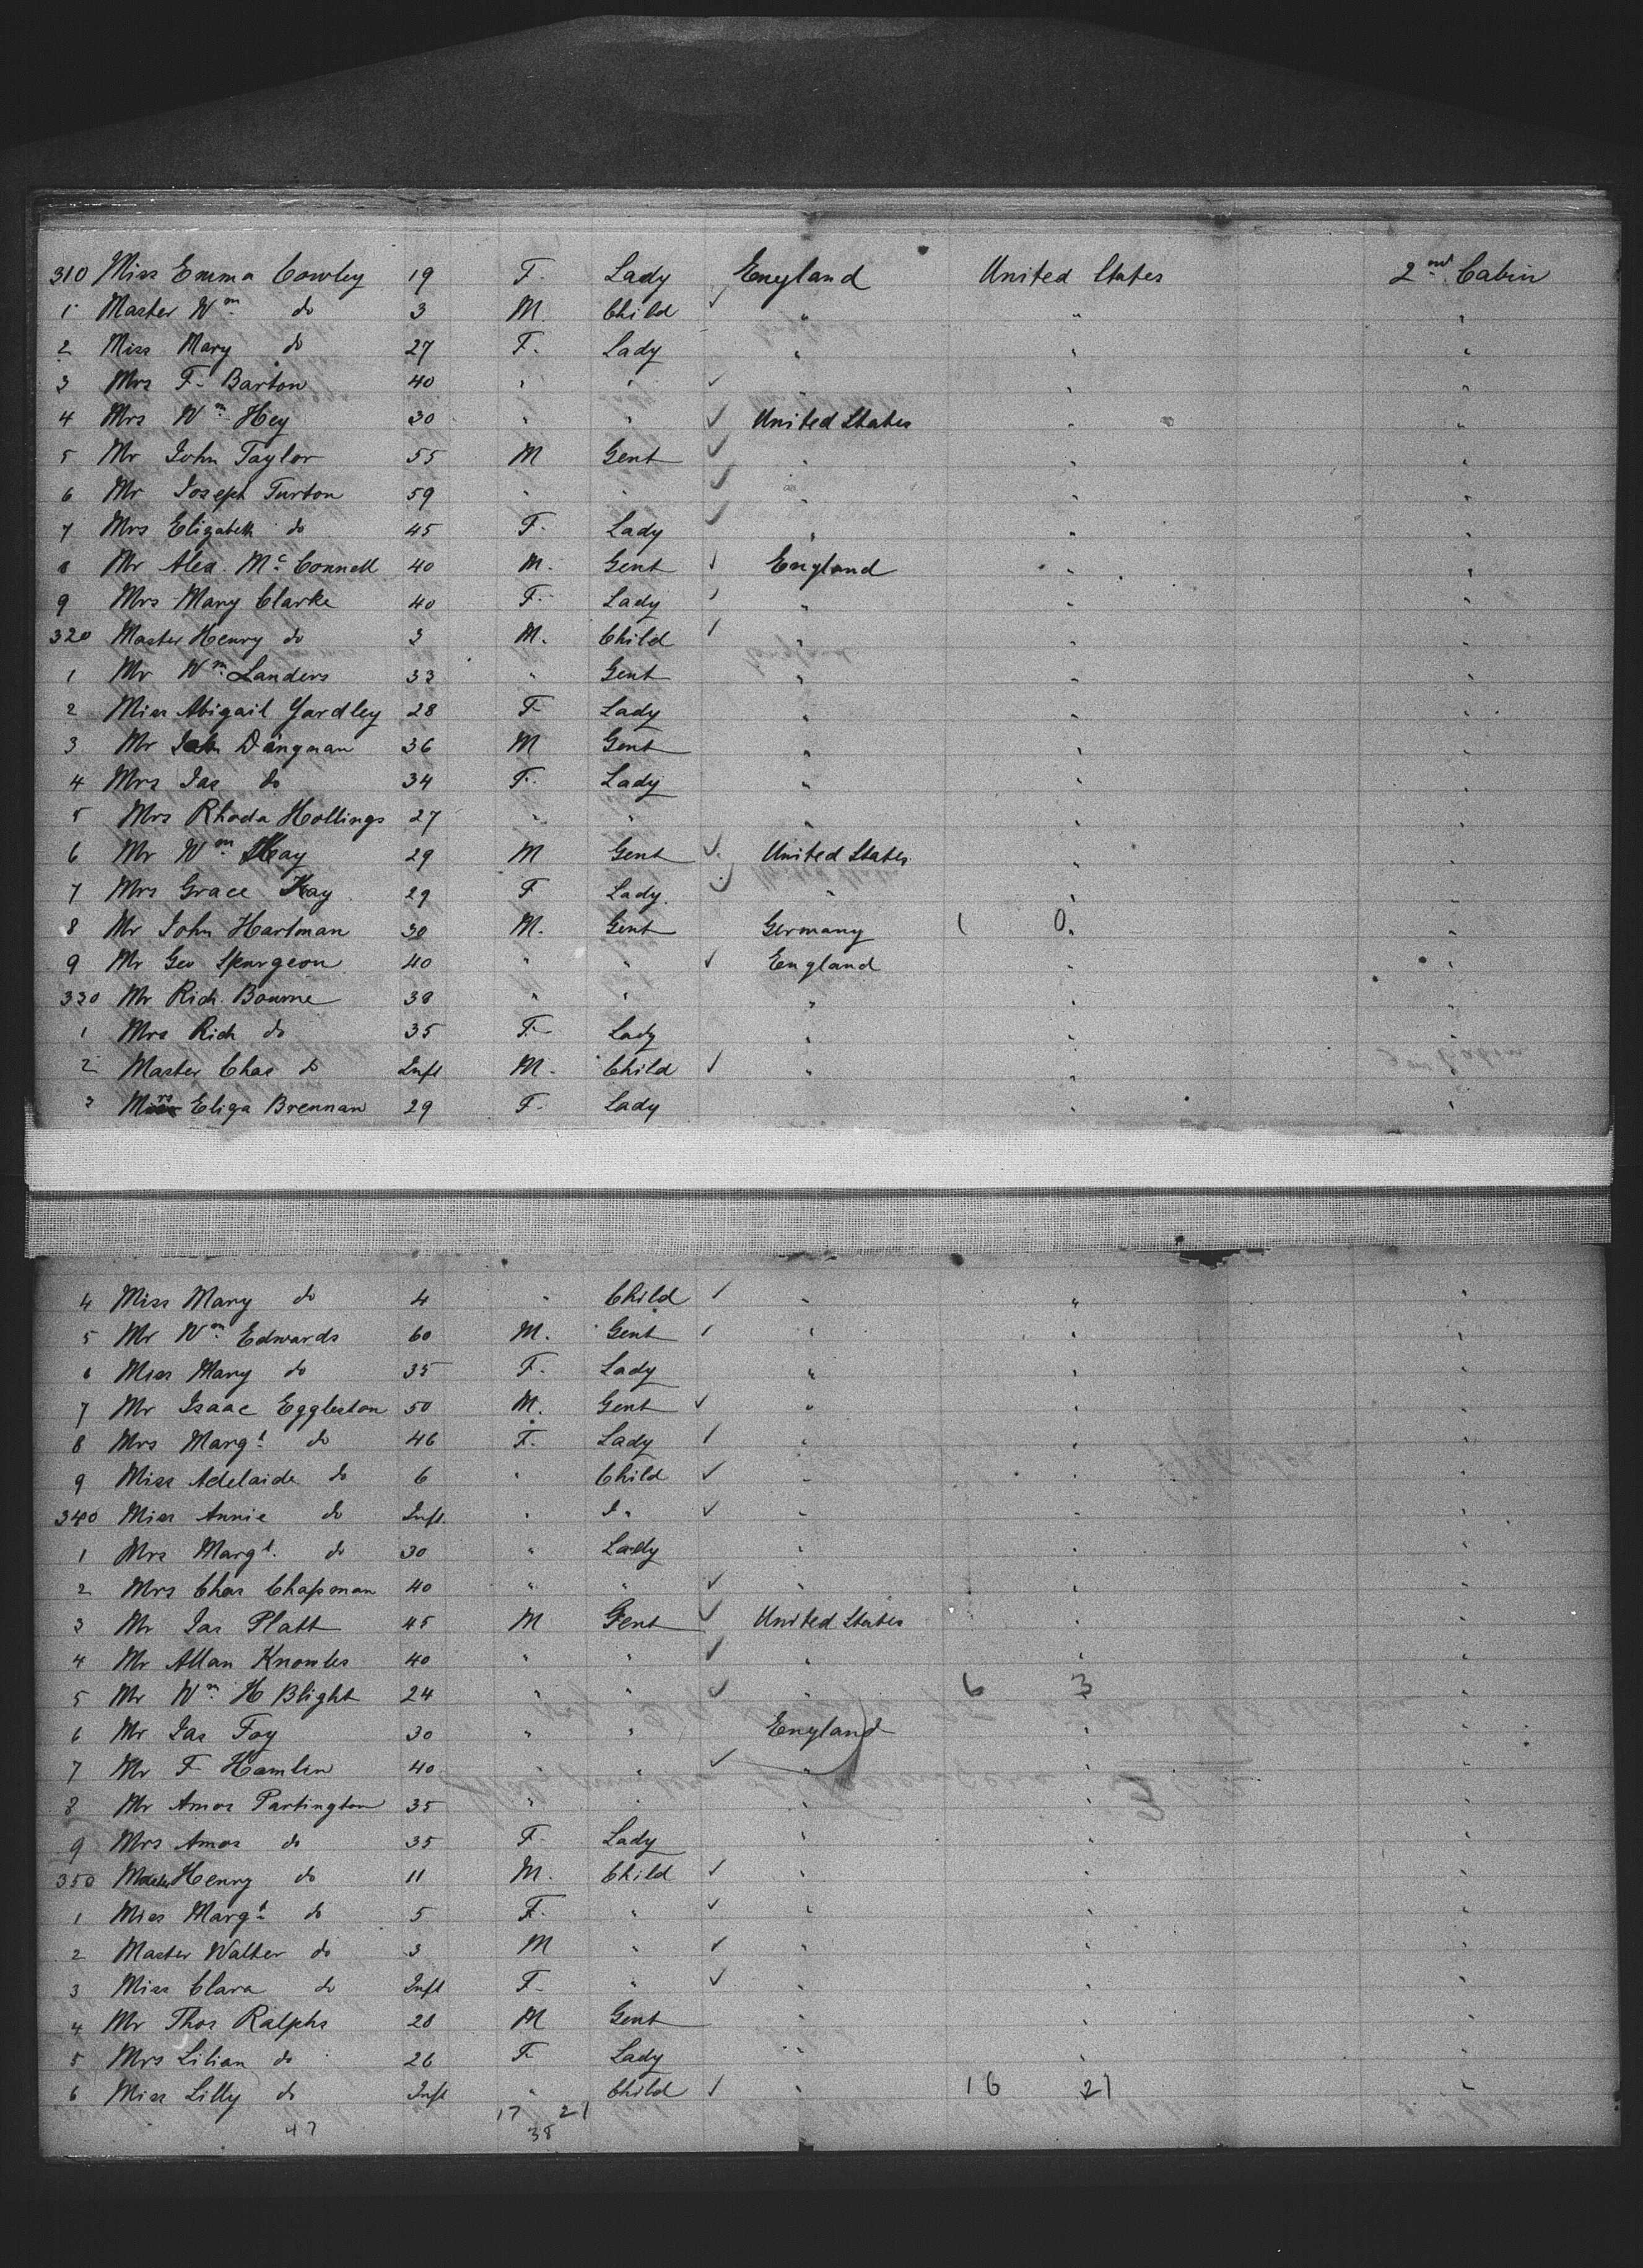 310 Miss Emma Cowley 19 F. Lady England United States 2nd Cabin
1 Master Wm do 3 M. Child ✓ " " "
2 Miss Mary do 27 F. Lady " " "
3 Mrs F. Barton 40 " " ✓ " " "
4 Mrs Wm Hey 30 " " ✓ United States " "
5 Mr John Taylor 55 M Gent ✓ " " "
6 Mr Joseph Turton 59 " " ✓ " " "
7 Mrs Elizabeth do 45 F. Lady ✓ " " "
8 Mr Alex. Mc Connell 40 M. Gent ✓ England " "
9 Mrs Mary Clarke 40 F. Lady ✓ " " "
320 Master Henry do 3 M. Child ✓ " " "
1 Mr Wm Landers 33 " Gent " " "
2 Miss Abigail Yardley 28 F Lady " " "
3 Mr Dangman 36 M Gent " " "
4 Mrs Jas do 34 F. Lady " " "
5 Mrs Rhoda Hollings 27 " " " " "
6 Mr Wm Kay 29 M Gent ✓ United States " "
7 Mrs Grace Kay 29 F Lady. ✓ " " "
8 Mr John Hartman 30 M. Gent Germany 1 0 " "
9 Mr Geo Spurgeon 40 " " ✓ England " "
330 Mr Rich. Bourne 38 " " " " "
1 Mrs Rich do 35 F. Lady " " "
2 Master Chas do Inft M. Child ✓ " " "
3 Mrs Eliza Brennan 29 F. Lady " "
4 Miss Mary do 4 " Child ✓ " " "
5 Mr Wm Edwards 60 M. Gent ✓ " " "
6 Miss Mary do 35 F. Lady " " "
7 Mr Isaac Eggleston 50 M. Gent ✓ " " "
8 Mrs Margt do 46 F. Lady ✓ " " "
9 Miss Adelaide do 6 " Child ✓ " " "
340 Miss Annie do Inft. " do ✓ " " "
1 Mrs Margt. do 30 " Lady " " "
2 Mrs Chas Chapman 40 " " ✓ " " "
3 Mr Jas Platt 45 M Gent ✓ United States " "
4 Mr Allan Knowles 40 " " ✓ " " "
5 Mr Wm H Blight 24 " " ✓ " 6 3 "
6 Mr Jas Foy 30 " " England " "
7 Mr F Hamlin 40 " " ✓ " " "
8 Mr Amos Partington 35 " " " " "
9 Mrs Amos do 35 F. Lady " " "
350 Master Henry do 11 M. Child ✓ " " "
1 Miss Margt do 5 F. " ✓ " " "
2 Master Walter do 3 M " ✓ " " "
3 Miss Clara do Inft F. " ✓ " " "
4 Mr Thos Ralphs 28 M Gent " " "
5 Mrs Lilian do 26 F Lady " " "
6 Miss Lilly do Inft " Child ✓ " 16 21 "
17 21
47 38